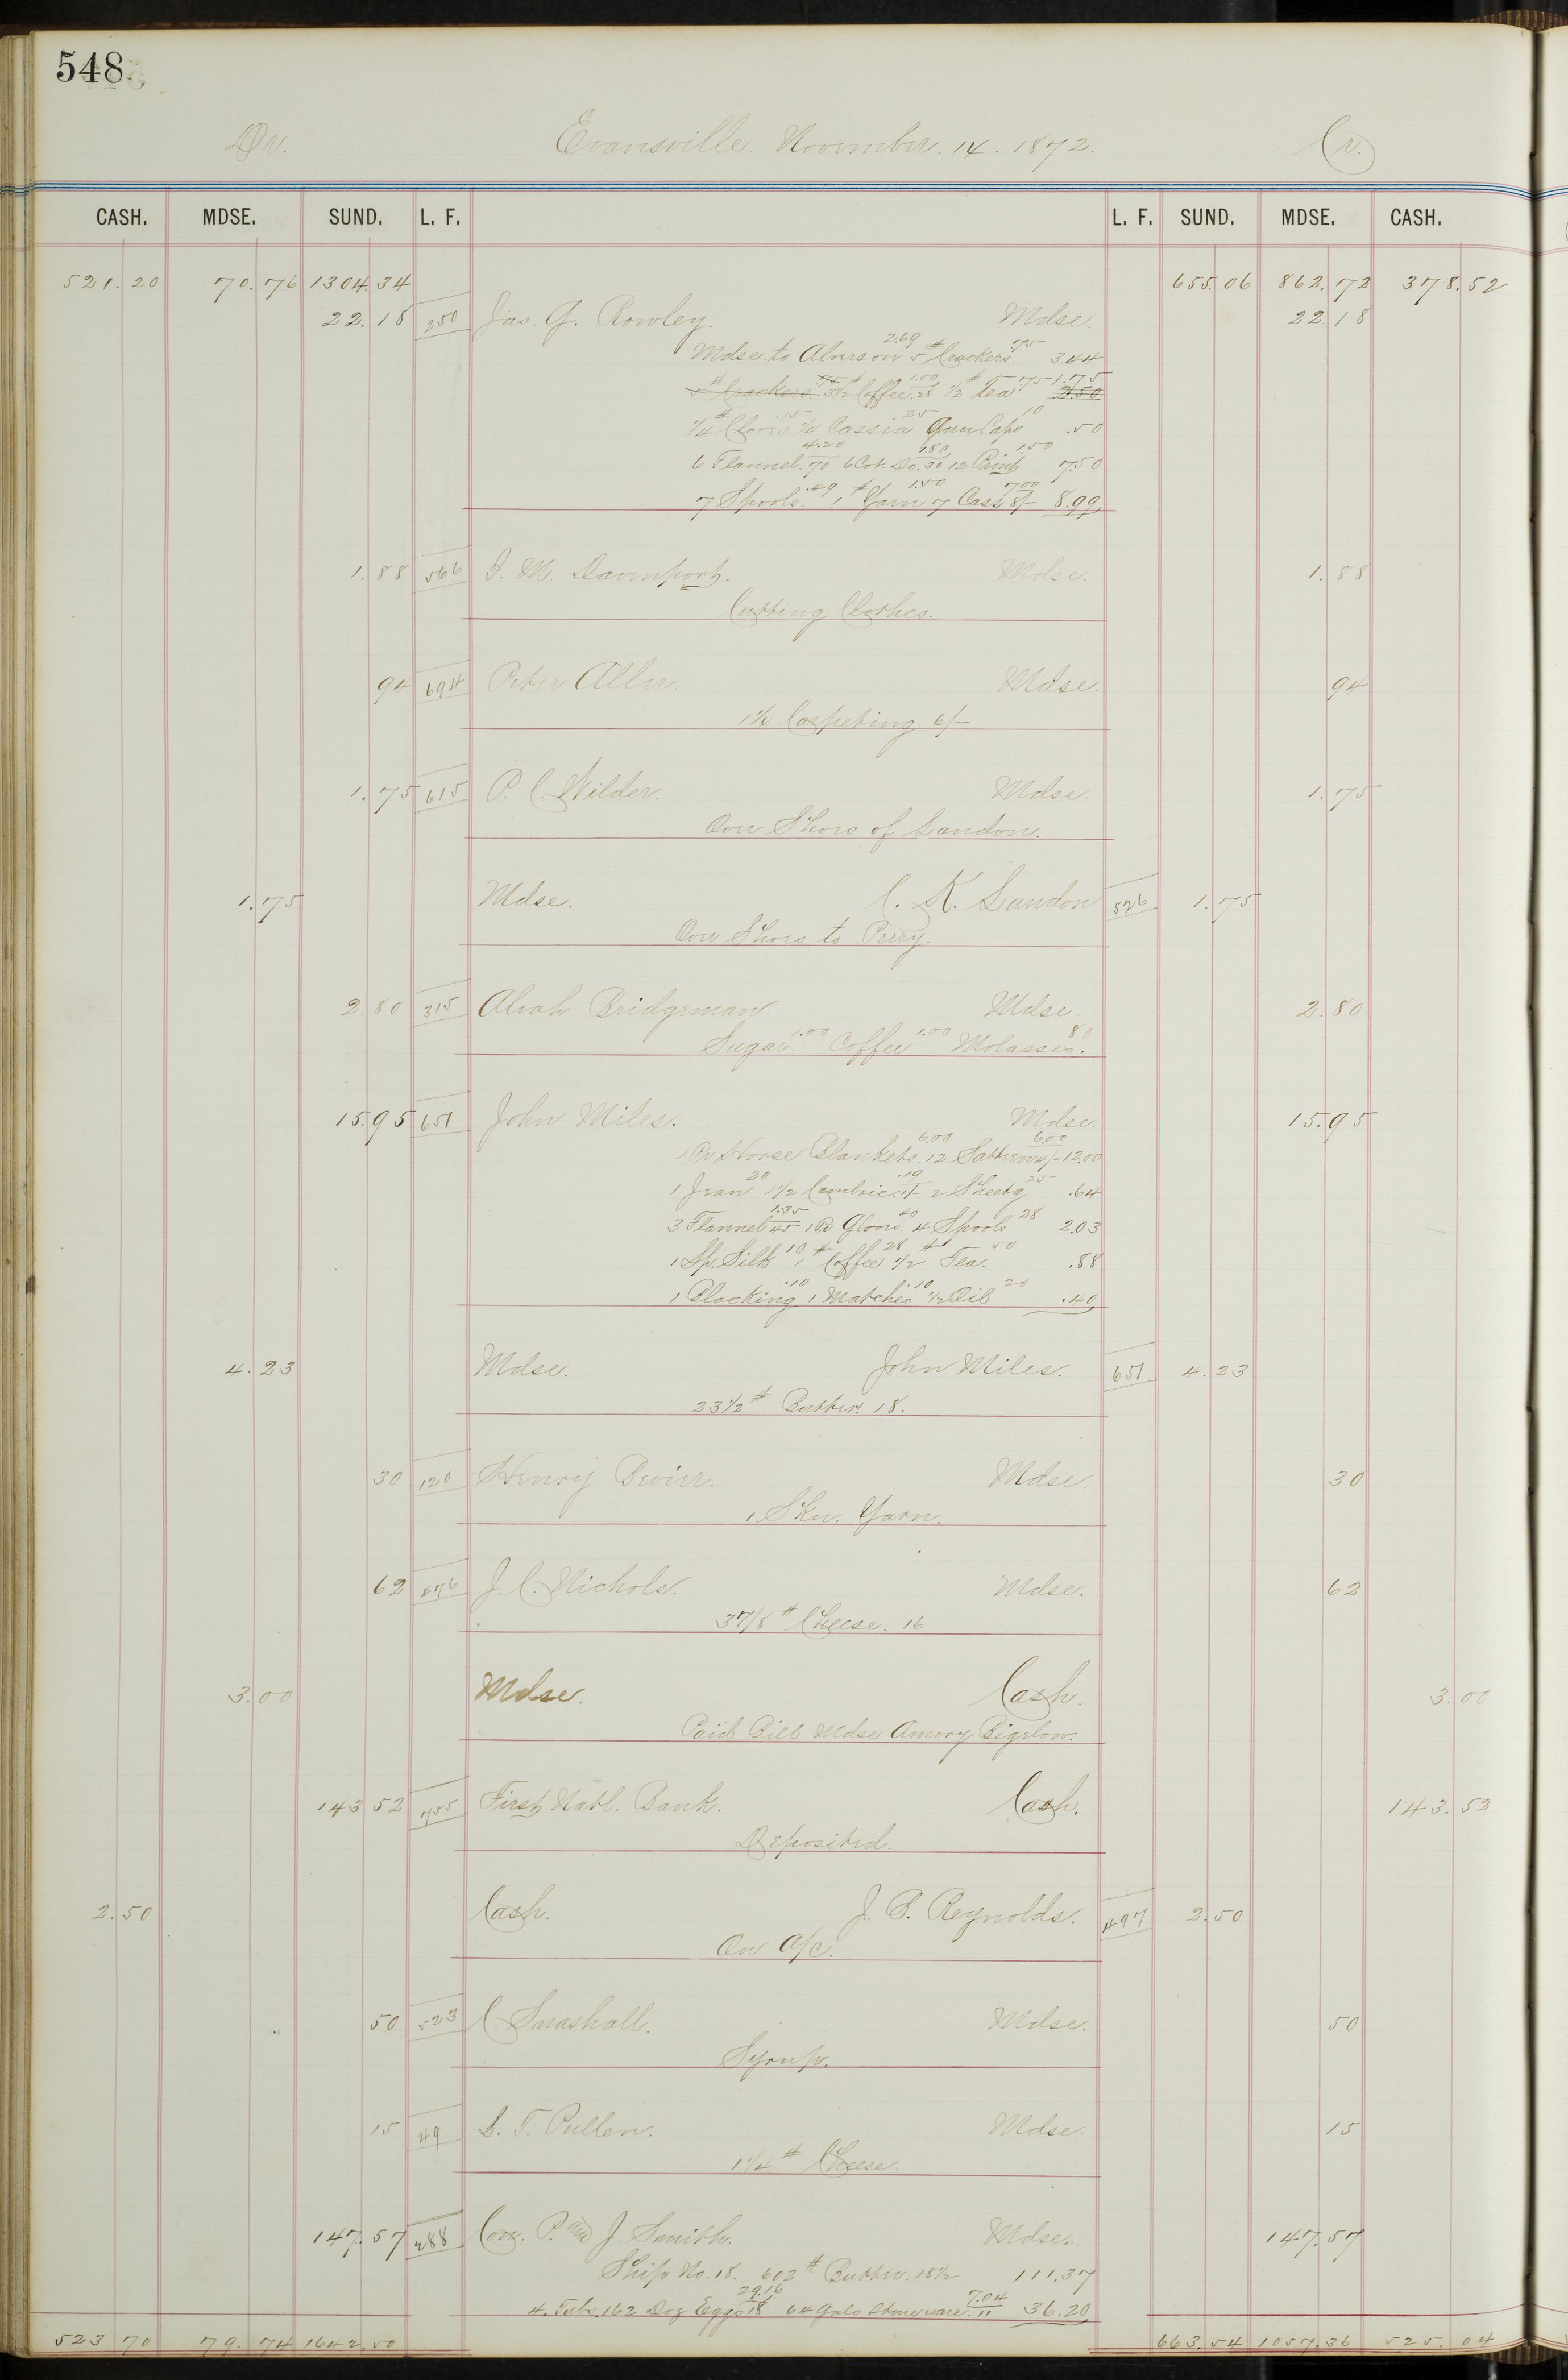 548
Dr. Evansville. November. 14. 1872. Cr.
CASH. MDSE. SUND. L. F. L. F. SUND. MDSE. CASH.
521.20 70.76 1304.34 655.06 862.72 378.52
22.18 250 Jas. G. Rowley. Mdse. 22.18
Mdse. to Alverson 2.69 5 # Crackers. .75 3.44
5 # Crackers. .75 3 1/2 # Coffee 1.00 .28 1/2 # Tea .75 1.75 2.50
1/4 # Cloves 15 1/4 Cassia 25 Gun Caps 10 .50
6 Flannel 4.20 .70 6 Cot. Do. 1.80 .30 12 Print 1.50 7.50
7 Spools. .49 1 # Yarn 1.50 7 Cass 7.00 8/- 8.99
1.88 566 J. M. Davenport. Mdse. 1.88
Cutting Clothes.
94 694 Peter Aller. Mdse. 94
1 1/4 Carpeting. 6/-
1.75 615 P. C. Wilder. Mdse. 1.75
Over Shoes of Landon.
1.75 Mdse. C. K. Landon 526 1.75
Over Shoes to Perry.
2.80 315 Alvah Bridgeman Mdse. 2.80
Sugar. 1.00 Coffee 1.00 Molasses. 80
15.95 651 John Miles. Mdse. 15.95
1 Pr Horse Blankets. 6.00 12 6.00 4/- 12.00
1 Jean 20 1 1/2 Cambric .19 2 Sheetg 25 .64
3 Flannel 1.35 45 1 Pr Gloves 40 4 Spools 28 2.03
1 Sp. Silk 10 1 # Coffee 28 1/2 # Tea. 50 .88
1 Blacking .10 1 Matches .10 1/2 Oil 20 .40
4.23 Mdse. John Miles. 651 4.23
23 1/2 # Butter. 18.
30 120 Henry Bevier. Mdse. 30
1 Skn. Yarn.
62 476 J. C. Nichols. Mdse. 62
3 7/8 # Cheese. 16
3.00 Mdse. Cash. 3.00
Paid Bill Mdse Amory Bigelow.
143 52 755 First Natl. Bank. Cash. 143.52
Deposited.
2.50 Cash. J. S. Reynolds. 497 2.50
On A/C.
50 523 C. Snashall. Mdse. 50
Syrup.
15 49 L. T. Pullen. Mdse. 15
1 1/4 # Cheese.
147.57 288 Con. P. and J. Smith. Mdse. 147.57
Ship No. 18. 602 # Butter. 18 1/2 111.37
4. Tubs. 162 Doz Eggs 29.16 18 64 Gals Stoneware. 7.04 11 36.20
523 70 79.74 1642.50 663.54 1057.36 525.04